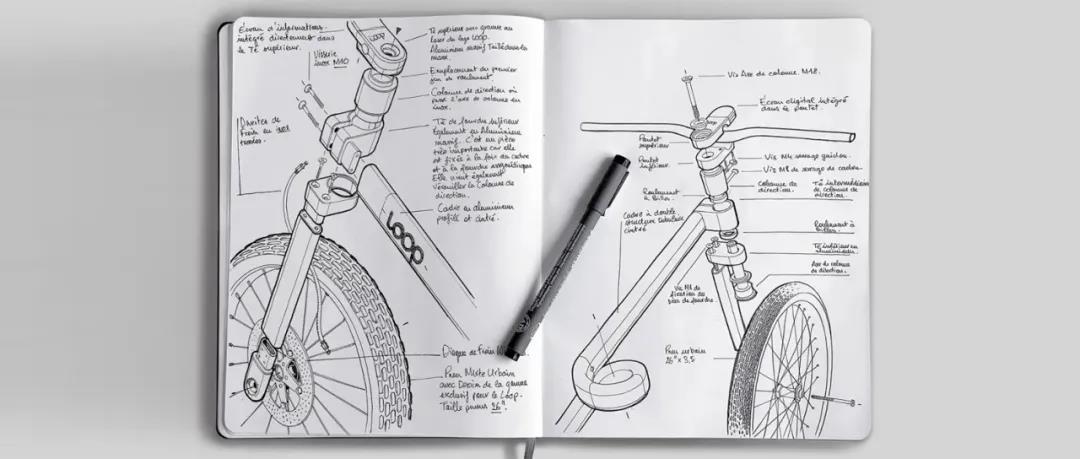 Écran d'informations
intégré directement dans
le Té supérieur.
Visserie
inox M10
Durites de
frein en inox
LOOP
Té supérieur avec gravure au
laser du logo LOOP.
Aluminium massif Taillé dans la
masse.
Emplacement du premier
jeu de roulement.
Colonne de direction où
passe l'axe de colonne en
inox.
Té de fourche inférieur
Également en Aluminium
massif. C'est une pièce
très importante car elle
est fixée à la fois au cadre
et à la fourche
Elle vient également
verrouiller la Colonne de
direction.
Cadre en aluminium
profilé et cintré.
LOOP
Disque de Frein
Pneu Mixte Urbain
avec Dessin de la gomme
exclusif pour le Loop.
Taille pneus 26".
Vis Axe de colonne. M18.
Écran digital intégré
dans le potet.
Potet
supérieur
Potet
inférieur.
Vis M4 serrage guidon.
Vis M8 de serrage de cadre.
Colonne de
direction.
Té intermédiaire
de colonne de
direction.
Roulement
à Billes.
Cadre à double
structure tubulaire
cintré
Roulement à
Billes.
Té inférieur en
aluminium.
Axe de colonne
de direction.
Vis M8 de
fixation de
de fourche.
Pneu urbain
26" x 3,5